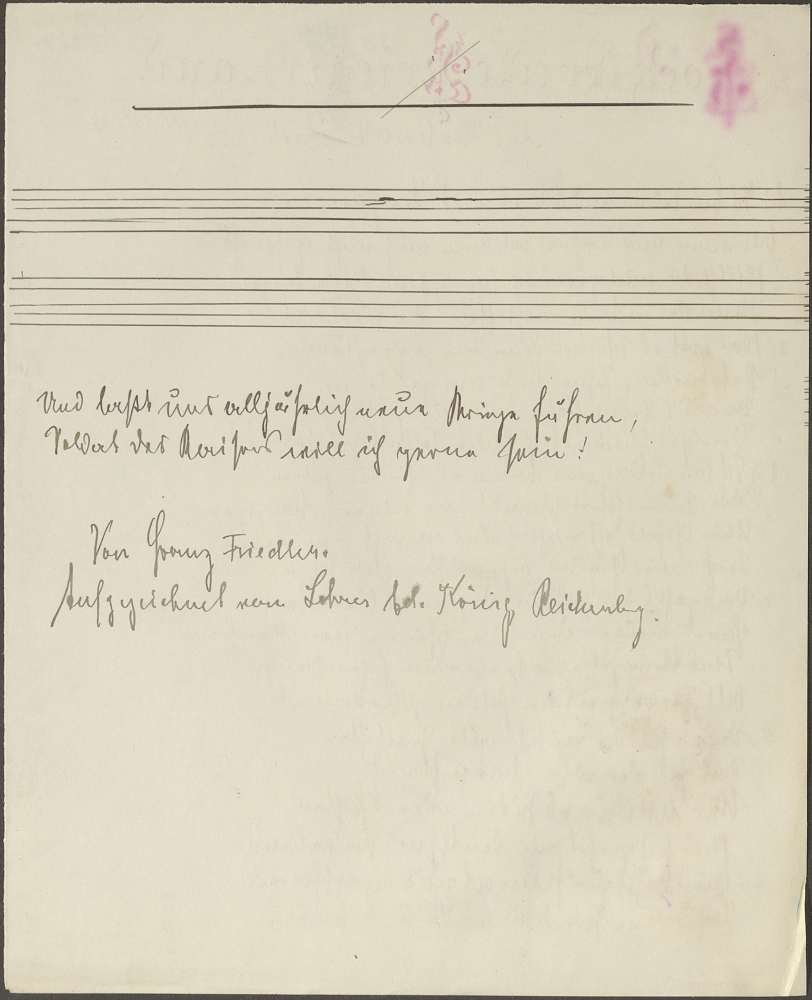 Und laßt uns alljährlich neue Kriege führen,
Soldat des Kaisers will ich gerne sein!
Von Franz Friedler.
Aufgezeichnet vom Lehrer Ed. König, Reichenberg.